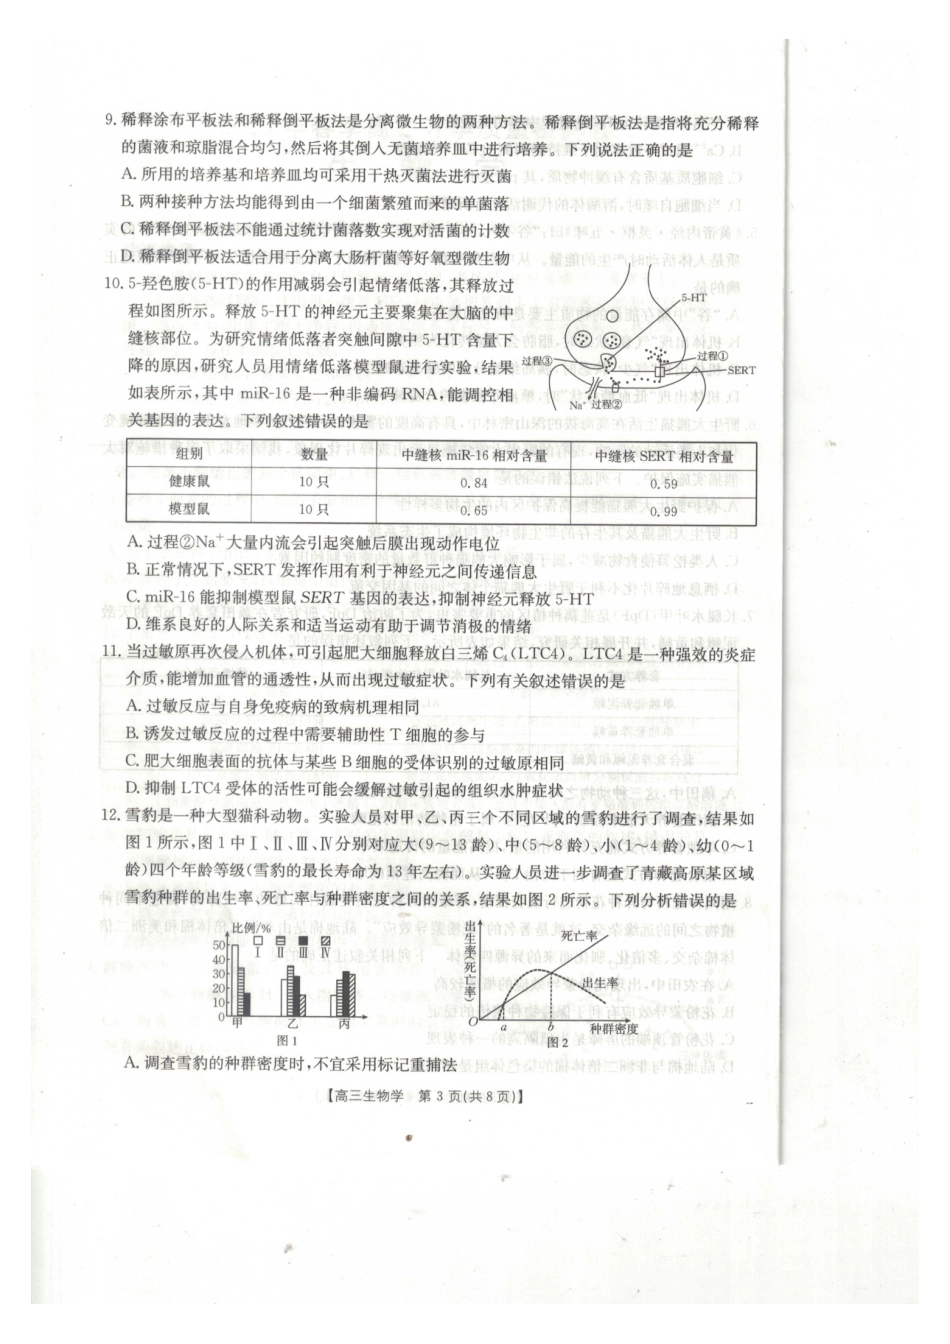 9. 稀释涂布平板法和稀释倒平板法是分离微生物的两种方法。稀释倒平板法是指将充分稀释
的菌液和琼脂混合均匀,然后将其倒入无菌培养皿中进行培养。下列说法正确的是
A. 所用的培养基和培养皿均可采用干热灭菌法进行灭菌
B. 两种接种方法均能得到由一个细菌繁殖而来的单菌落
C. 稀释倒平板法不能通过统计菌落数实现对活菌的计数
D. 稀释倒平板法适合用于分离大肠杆菌等好氧型微生物
10. 5-羟色胺(5-HT)的作用减弱会引起情绪低落,其释放过
程如图所示。释放 5-HT 的神经元主要聚集在大脑的中
缝核部位。为研究情绪低落者突触间隙中 5-HT 含量下
降的原因,研究人员用情绪低落模型鼠进行实验,结果
如表所示,其中 miR-16 是一种非编码 RNA,能调控相
关基因的表达。下列叙述错误的是
5-HT
过程③
过程①
SERT
Na⁺ 过程②
组别 数量 中缝核 miR-16 相对含量 中缝核 SERT 相对含量
健康鼠 10 只 0.84 0.59
模型鼠 10 只 0.65 0.99
A. 过程②Na⁺大量内流会引起突触后膜出现动作电位
B. 正常情况下,SERT 发挥作用有利于神经元之间传递信息
C. miR-16 能抑制模型鼠 SERT 基因的表达,抑制神经元释放 5-HT
D. 维系良好的人际关系和适当运动有助于调节消极的情绪
11. 当过敏原再次侵入机体,可引起肥大细胞释放白三烯 C₄(LTC4)。LTC4 是一种强效的炎症
介质,能增加血管的通透性,从而出现过敏症状。下列有关叙述错误的是
A. 过敏反应与自身免疫病的致病机理相同
B. 诱发过敏反应的过程中需要辅助性 T 细胞的参与
C. 肥大细胞表面的抗体与某些 B 细胞的受体识别的过敏原相同
D. 抑制 LTC4 受体的活性可能会缓解过敏引起的组织水肿症状
12. 雪豹是一种大型猫科动物。实验人员对甲、乙、丙三个不同区域的雪豹进行了调查,结果如
图 1 所示,图 1 中Ⅰ、Ⅱ、Ⅲ、Ⅳ分别对应大(9～13 龄)、中(5～8 龄)、小(1～4 龄)、幼(0～1
龄)四个年龄等级(雪豹的最长寿命为 13 年左右)。实验人员进一步调查了青藏高原某区域
雪豹种群的出生率、死亡率与种群密度之间的关系,结果如图 2 所示。下列分析错误的是
比例/%
Ⅰ Ⅱ Ⅲ Ⅳ
50
40
30
20
10
0
甲 乙 丙
图 1
出生率(死亡率)
死亡率
出生率
O a b 种群密度
图 2
A. 调查雪豹的种群密度时,不宜采用标记重捕法
【高三生物学 第 3 页(共 8 页)】